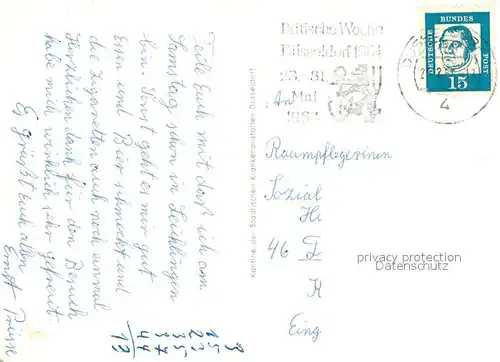 Teile Euch mit daß ich am
Samstag schon in Leichlingen
bin. Sonst geht es mir gut
Essen und Bier schmeckt und
die Zigaretten auch noch einmal
Herzlichen Dank für den Besuch
habe mich wirklich sehr gefreut.
Es grüßt Euch allen
Ernst
Kantine der Städtischen Krankenanstalten Düsseldorf
Britische Woche
Düsseldorf 1964
23.-31.
Mai
1964
4
DEUTSCHE BUNDES POST
15
An
Raumpflegerinnen
Sozial
Hi
46 D
K
Eing
privacy protection
Datenschutz